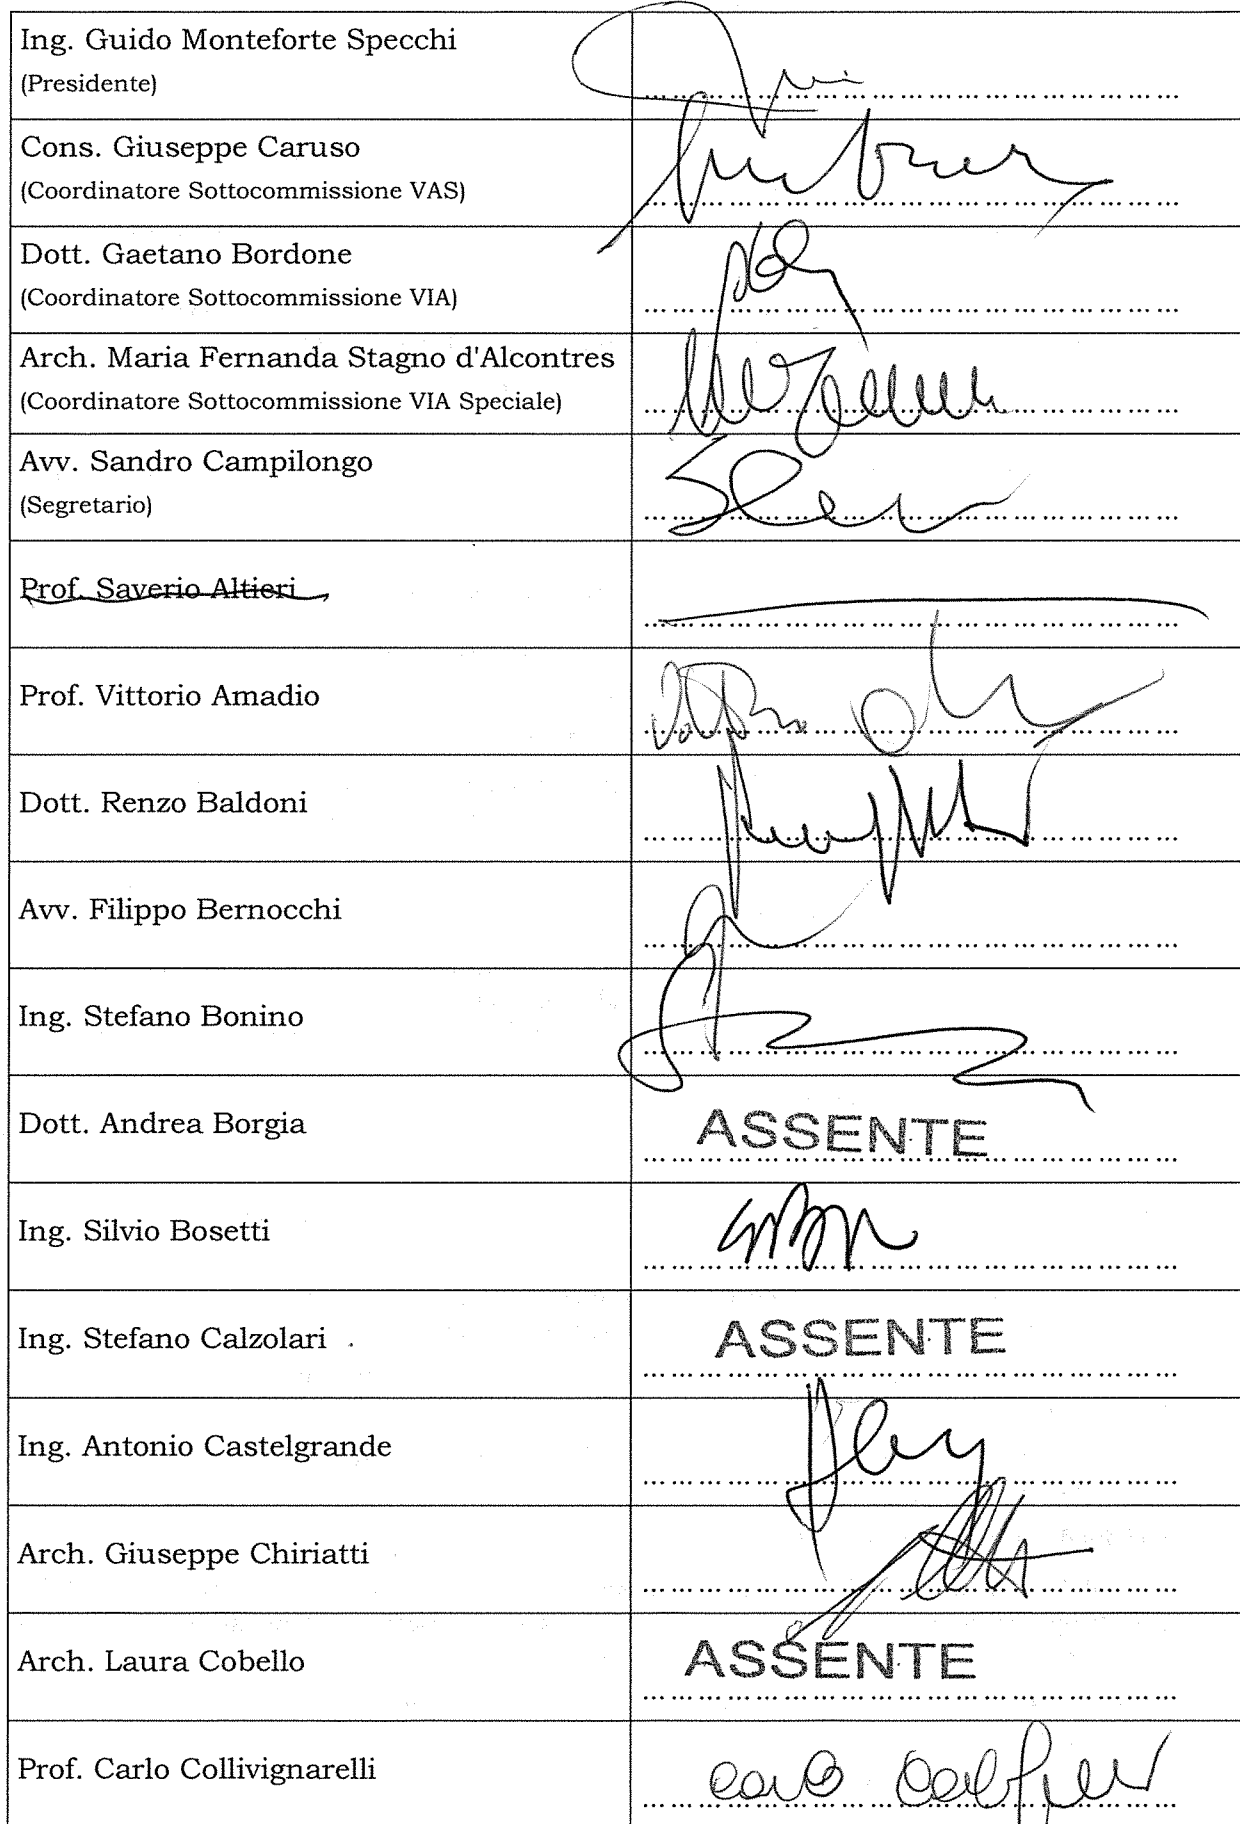 Ing. Guido Monteforte Specchi
(Presidente)
Cons. Giuseppe Caruso
(Coordinatore Sottocommissione VAS)
Dott. Gaetano Bordone
(Coordinatore Sottocommissione VIA)
Arch. Maria Fernanda Stagno d'Alcontres
(Coordinatore Sottocommissione VIA Speciale)
Avv. Sandro Campilongo
(Segretario)
Prof. Saverio Altieri
Prof. Vittorio Amadio
Dott. Renzo Baldoni
Avv. Filippo Bernocchi
Ing. Stefano Bonino
Dott. Andrea Borgia
ASSENTE
Ing. Silvio Bosetti
Ing. Stefano Calzolari
ASSENTE
Ing. Antonio Castelgrande
Arch. Giuseppe Chiriatti
Arch. Laura Cobello
ASSENTE
Prof. Carlo Collivignarelli